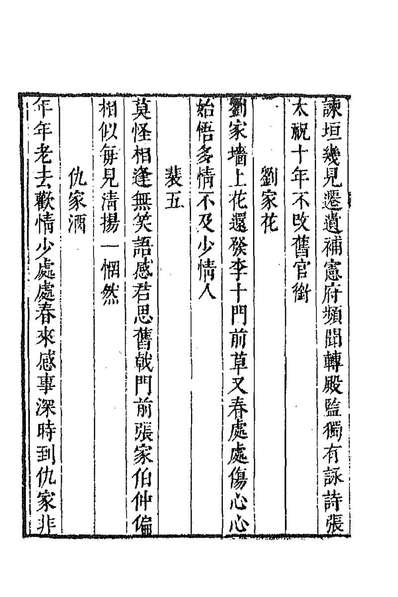 諫垣幾見遷遺補憲府頻聞轉殿監獨有詠詩張
太祝十年不改舊官銜
劉家花
劉家墻上花還發李十門前草又春處處傷心心
始悟多情不及少情人
裴五
莫怪相逢無笑語感君思舊戟門前張家伯仲偏
相似每見清揚一惘然
仇家酒
年年老去歡情少處處春來感事深時到仇家非